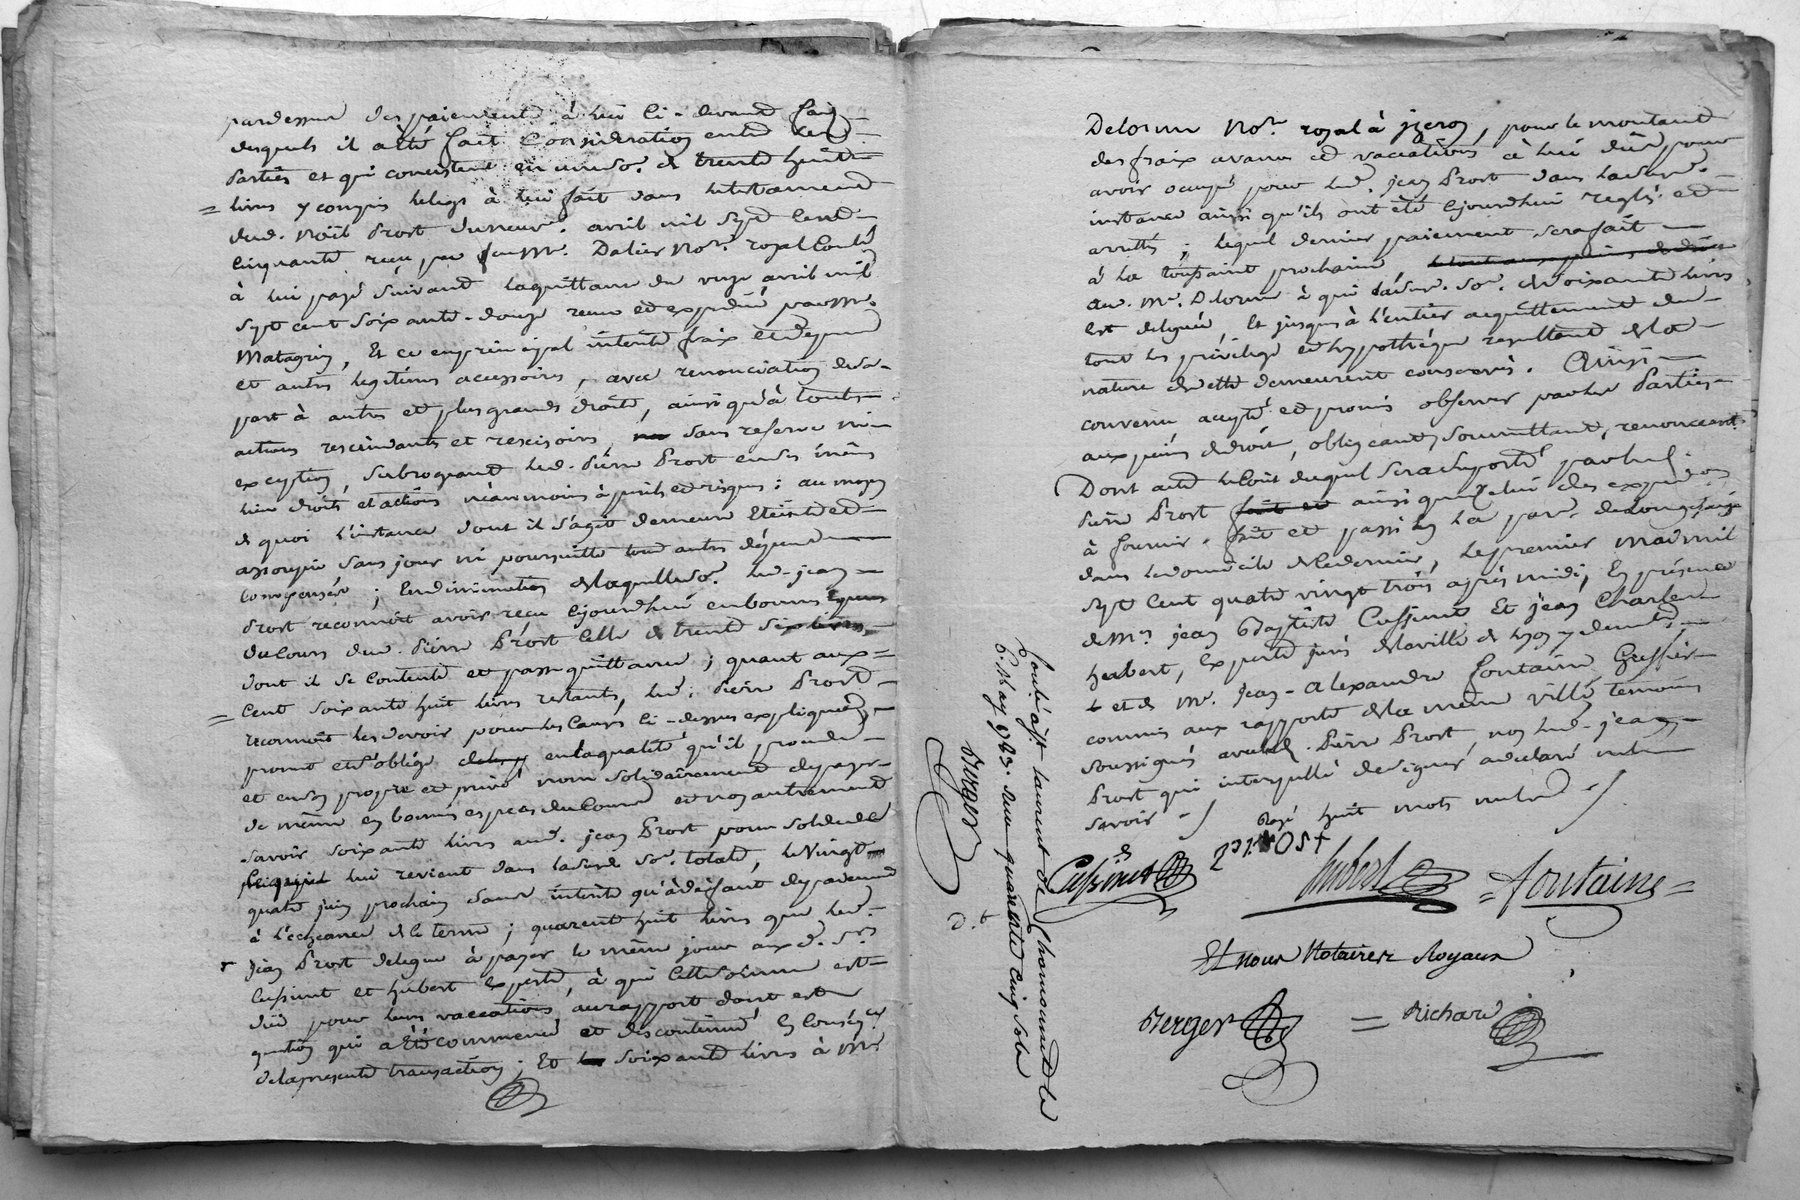 pardessus des paiements à lui ci-devant faits
desquels il a été fait consideration entre les d.
parties et qui consistent en une so.e de trente huit
livres y compris le legs à lui fait dans le testament
dud. Noël Prost du neuf. avril mil sept cent
cinquante reçu par feu Mr. Dalier No.re royal
à lui payé suivant la quittance du onze avril mil
sept cent soixante-douze reçue et expediée par Mr.
Matagrin, Et ce en principal interêts fraix et depens
et autres legitimes accessoires, avec renonciation de sa
part à autres et plus grands droits, ainsi qu'à toutes
actions rescindants et rescisoires, sans reserve ni
exception, subrogeant led. Pierre Prost en ses mêmes
lieu droits et actions néanmoins à perils et risques; au moyen
de quoi l'instance dont il s'agit demeure eteinte et
assoupie sans jour ni poursuitte tous autres dépens
compensés; en diminution de laquelle so.e led. jean
Prost reconnoit avoir reçu ejourdhui en bonnes espèces
du cours dud. Pierre Prost celle de trente six livres,
dont il se contente et passe quittance; quant aux
cent soixante huit livres restants, led. Pierre Prost
reconnoit les devoir pour les causes ci-dessus expliquées,
promet et s'oblige en la qualité qu'il procede
et en son propre et privé nom solidairement de payer
de même en bonnes especes du cours et non autrement
savoir soixante livres aud. jean Prost pour solde de
ce qui lui revient dans lad. so.e totale, le vingt
quatre juin prochain sans interêt qu'à deffaut de paiement
à l'échéance de ce terme; quarente huit livres que led.
Jean Prost delegue à payer le même jour aux d. S.rs
Cussinet et hubert experts, à qui cette somme est
düe pour leurs vaccations au rapport dont est
question qui a été commencé et discontinué en conséq.ce
de la presente transaction; Et soixante livres à Mr.
Delorme No.re royal à yzeron, pour le montant
des fraix avances et vacations à lui dûs pour
avoir occupé pour led. jean Prost dans lad.
instance ainsi qu'ils ont été ejourdhui reglés et
arrettés; lequel dernier paiement sera fait
à la toussaint prochaine
au. Mr. Delorme à qui lad. so.e de soixante livres
est deleguée, Et jusques à l'entier acquittement de
tout les privilege et hypothéque resultant de la
nature de dette demeurent conservés. Ainsi
convenu accepté et promis observer par les Parties
aux peines de droit, obligeant, soumettant, renonceant
Dont acte le cout duquel sera suporté par led.
Pierre Prost ainsi que celui des expeditions
à fournir. fait et passé en la par. de Longessaigne
dans le domicile de ce dernier, le premier mai mil
sept cent quatre vingt trois après midi, en présence
de Mrs jean Baptiste Cussinet Et jean Charles
hubert, experts jurés de la ville de Lyon y demts.
et de Mr. jean-alexandre fontaine Greffier
commis aux rapports de la même ville témoins
soussignés avec led. Pierre Prost non led. jean
Prost qui interpellé de signer a declaré ne le
savoir ./. Rayé huit mots nuls ./.
Cussinet Pierre Prost hubert =fontaine=
Et nous Notaires Royaux
Berger = Richard
Contr. à St. laurent de Chamousset le
6. May 1783. reçu quarante cinq sols
Berger
d. t.